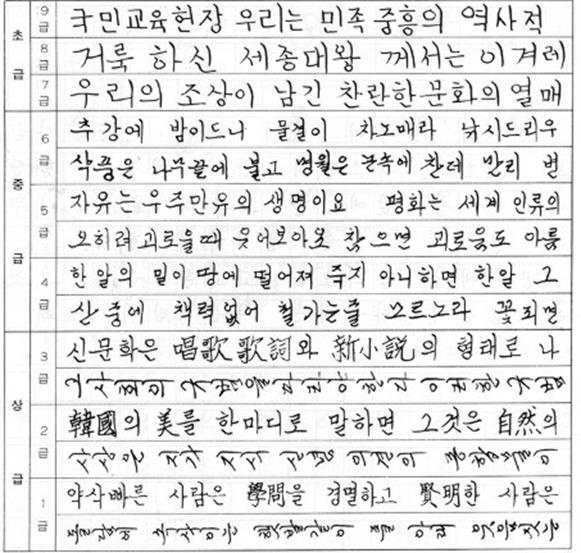 초급
9급 국민교육헌장 우리는 민족 중흥의 역사적
8급 거룩 하신 세종대왕 께서는 이 겨레
7급 우리의 조상이 남긴 찬란한 문화의 열매
중급
6급 추강에 밤이드니 물결이 차노매라 낚시드리우
삭풍은 나무끝에 불고 명월은 눈속에 찬데 만리 변
5급 자유는 우주만유의 생명이요 평화는 세계 인류의
오히려 괴로울때 웃어보아요 참으면 괴로움도 아름
4급 한 알의 밀이 땅에 떨어져 죽지 아니하면 한알 그
산중에 책력없어 철가는줄 모르노라 꽃피면
상급
3급 신문화은 唱歌 歌詞와 新小説의 형태로 나
2급 韓國의 美를 한마디로 말하면 그것은 自然의
사상은 지각 지식 신념 의견의
1급 약삭빠른 사람은 學問을 경멸하고 賢明한 사람은